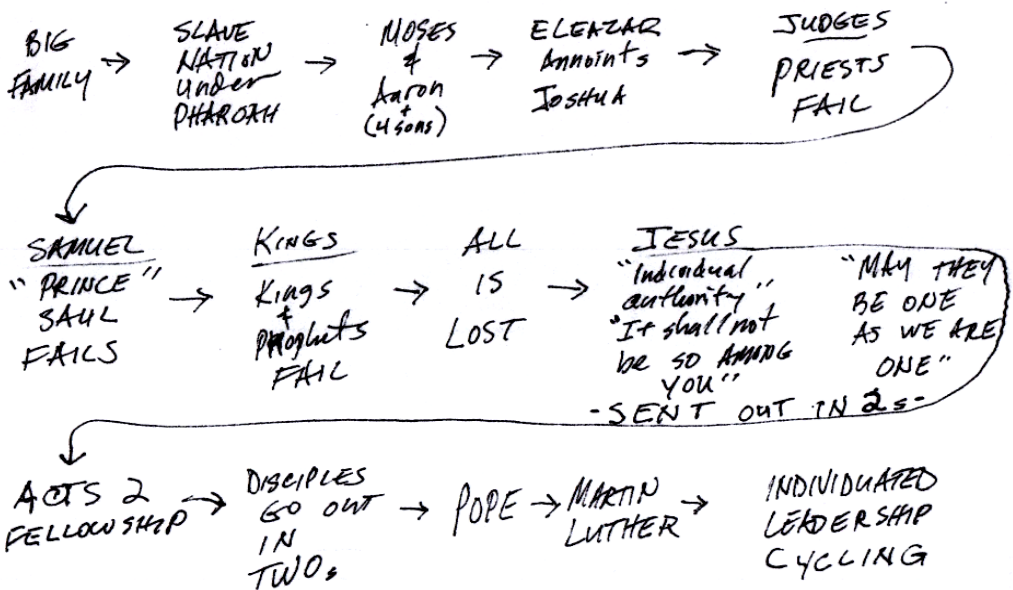 BIG
FAMILY →
SLAVE
NATION
under
PHAROAH →
MOSES
&
Aaron
+
(4 sons) →
ELEAZAR
Annoints
JOSHUA →
JUDGES
PRIESTS
FAIL
SAMUEL
"PRINCE"
SAUL
FAILS →
KINGS
Kings
+
Prophets
FAIL →
ALL
IS
LOST →
JESUS
"Individual
authority"
"It shall not
be so AMONG
YOU"
"MAY THEY
BE ONE
AS WE ARE
ONE"
- SENT OUT IN 2s -
ACTS 2
FELLOWSHIP →
DISCIPLES
GO OUT
IN
TWOs →
POPE →
MARTIN
LUTHER →
INDIVIDUATED
LEADERSHIP
CYCLING